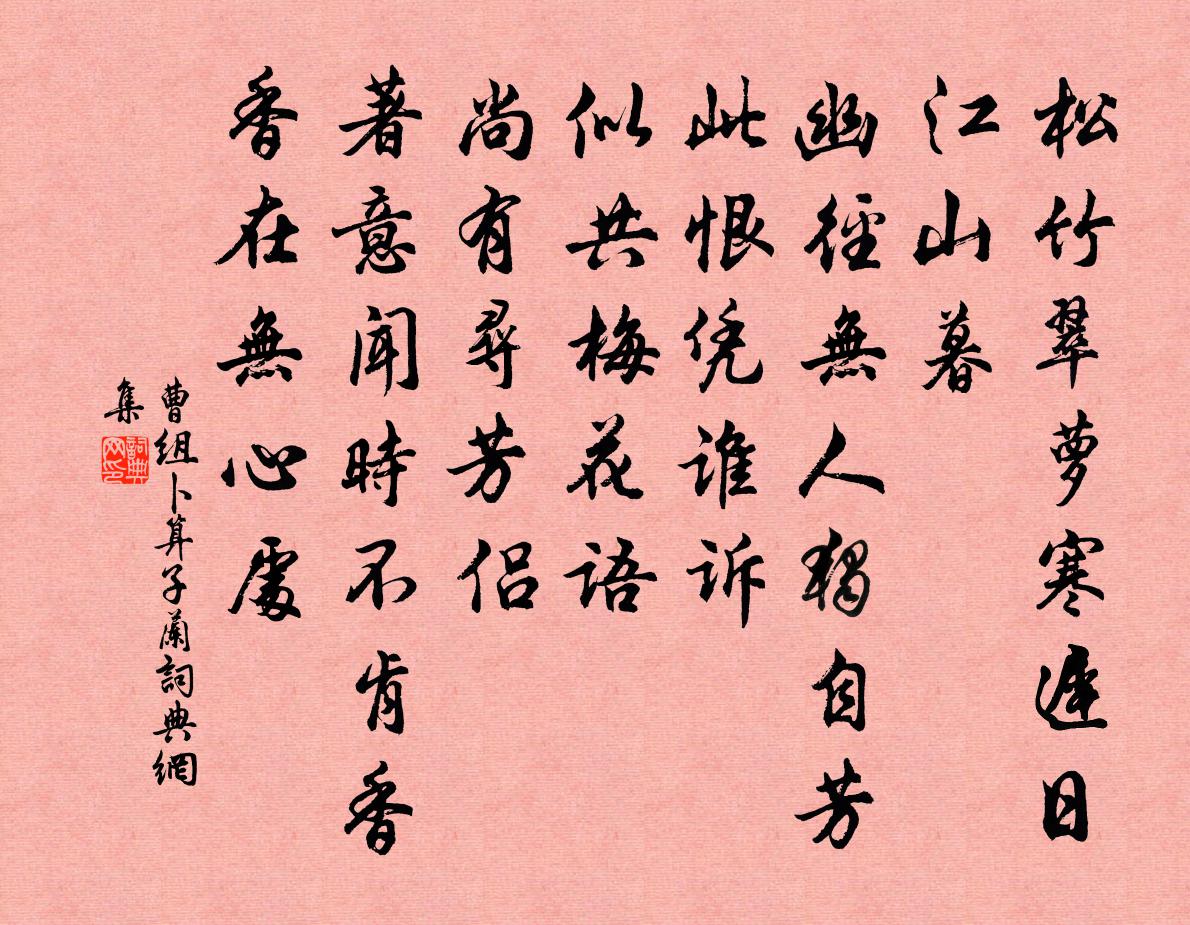 松竹翠萝寒遲日
江山暮
幽徑無人獨自芳
此恨凭谁诉
似共梅花语
尚有尋芳侣
著意闻時不肯香
香在無心處
曹组卜算子蘭詞典網
集
詞典
网印